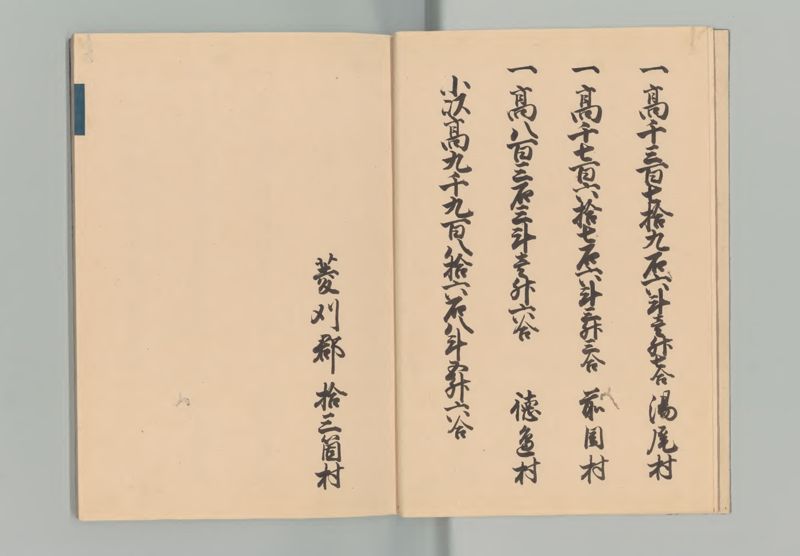 一高千三百七拾九石六斗壱升七合 湯尾村
一高千七百六拾七石六斗三升三合 前目村
一高八百三石三斗壱升六合 徳邉村
小以高九千九百八拾六石八斗五升六合
菱刈郡 拾三箇村